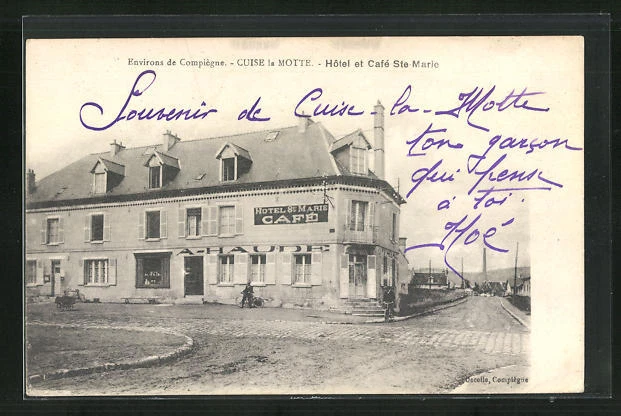 Environs de Compiègne. - CUISE la MOTTE. - Hôtel et Café Ste-Marie
Souvenir de Cuise-la-Motte
ton garçon
qui pense
à toi.
HOTEL Ste MARIE
CAFÉ
A. HAUDE
Decelle, Compiègne